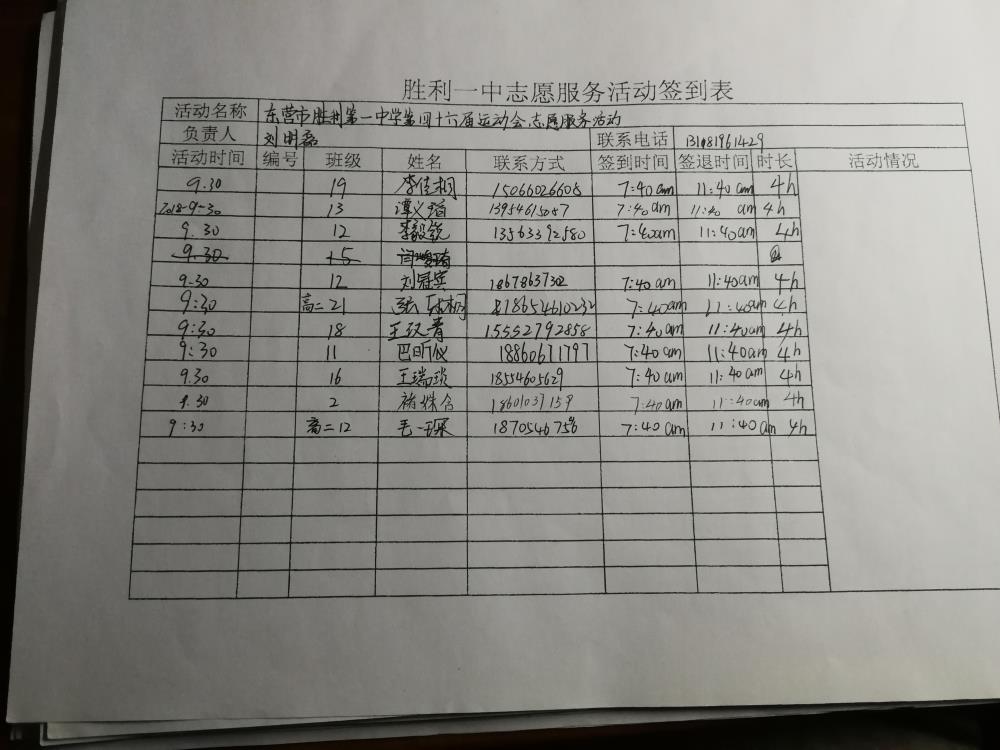 胜利一中志愿服务活动签到表
活动名称 东营市胜利第一中学第四十六届运动会志愿服务活动
负责人 刘明磊 联系电话 13181961429
活动时间 编号 班级 姓名 联系方式 签到时间 签退时间 时长 活动情况
9.30 19 李佳桐 15066026608 7:40am 11:40am 4h
2018-9-30 13 谭义瑄 13954615057 7:40am 11:40 am 4h
9.30 12 李毅锐 13563392580 7:40am 11:40am 4h
9.30 15
9.30 12 刘冠宾 1867863730 7:40am 11:40am 4h
9:30 高二21 18654610232 7:40am 11:40am 4h
9:30 18 王汉青 15552792858 7:40am 11:40am 4h
9:30 11 巴昕仪 18860671797 7:40am 11:40am 4h
9.30 16 王瑞琪 18554605629 7:40am 11:40am 4h
9.30 2 7:40am 11:40am 4h
9:30 高二12 毛一琛 7:40am 11:40am 4h